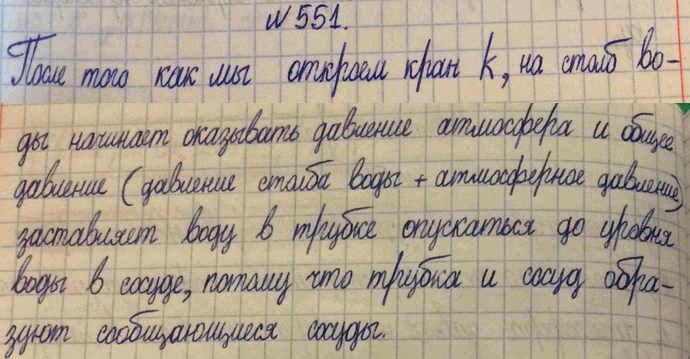 №551.
После того как мы откроем кран k, на столб во-
ды начинает оказывать давление атмосфера и общее
давление (давление столба воды + атмосферное давление)
заставляет воду в трубке опускаться до уровня
воды в сосуде, потому что трубка и сосуд обра-
зуют сообщающиеся сосуды.